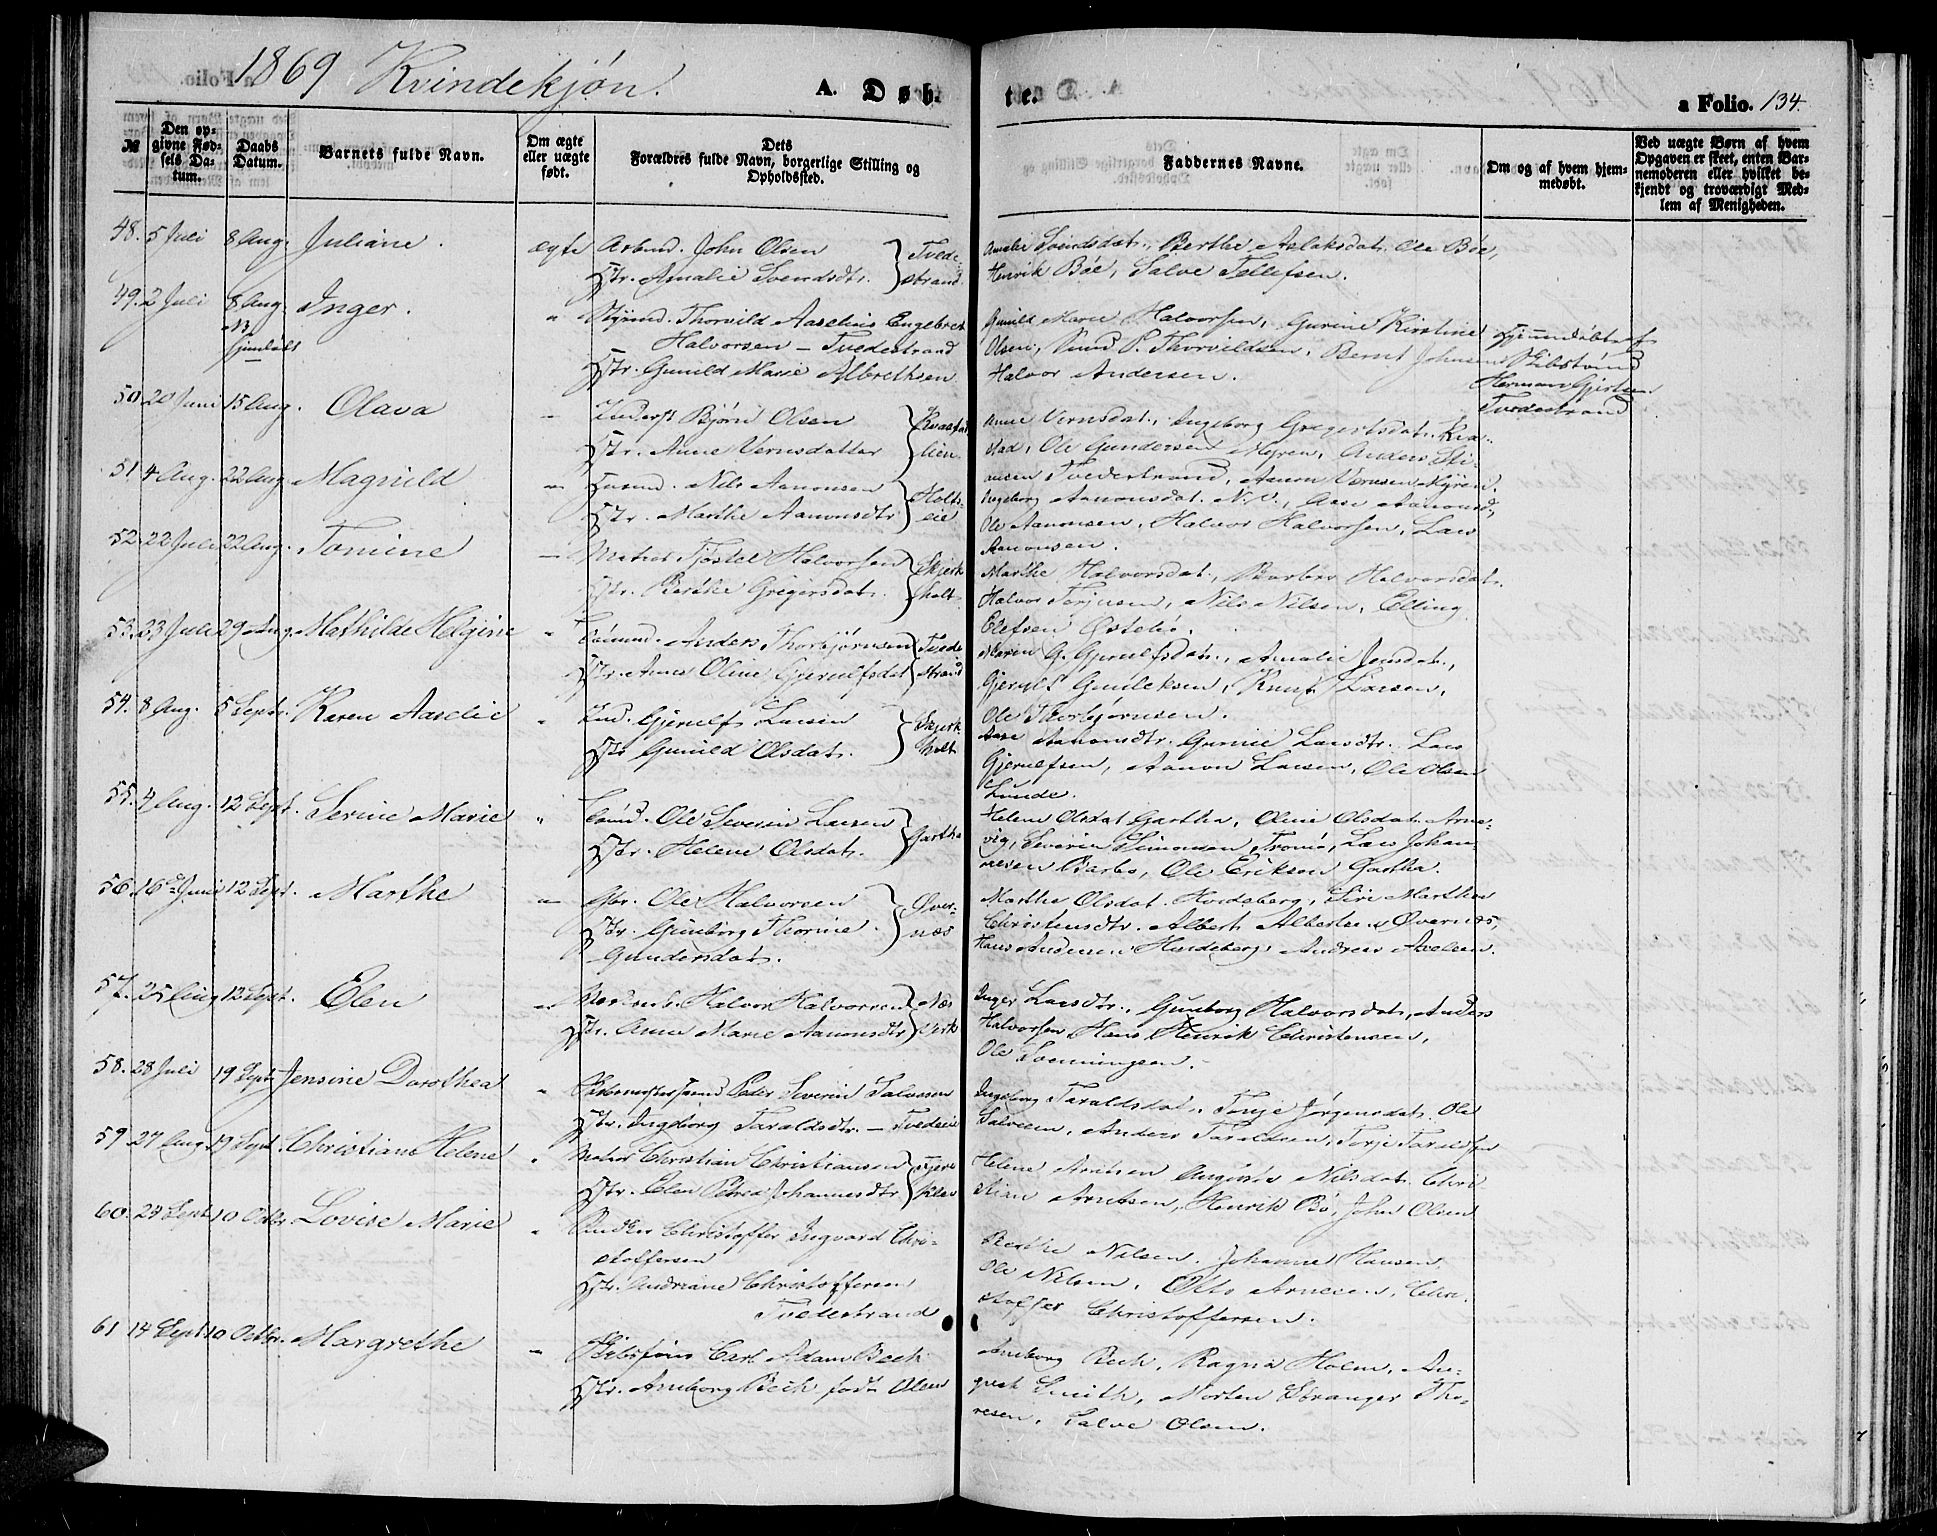 1869 Kvindekjøn.
A. Døb-
te.
a Folio. 134.
№
Den op-
givne Fød-
sels Da-
tum.
Daabs
Datum.
Barnets fulde Navn.
Om ægte
eller uægte
født.
Dets
Forældres fulde Navn, borgerlige Stilling og
Opholdssted.
Faddernes Navne.
Om og af hvem hjem-
medøbt.
Ved uægte Børn af hvem
Opgaven er skeet, enten Bar-
nemoderen eller hvilket be-
kjendt og troværdigt Med-
lem af Menigheden.
48. 5 Juli 8 Aug. Juliane. ægte Arbmd. John Olsen
Hstr. Amalie Svendsdtr. Tvede-
strand
Amalie Svendsdat., Berthe Aslaksdat. Ole Bøe,
Henrik Bøe, Salve Tellefsen.
49. 2 Juli 8 Aug. Inger. " Thorvild Aaselius Engebret
Halvorsen — Tvedestrand
Hstr. Gunild Marie Albrethsen
Gunild Marie Halvorsen, Gurine Kirstine
Olsen, Knud P. Thorvildsen, Bernt Johnsen
Halvor Andersen.
Hjemmedøbt af
Herman Gjertsen
Tvedestrand
50. 20 Juni 15 Aug. Olava " Inderst Bjørn Olsen
Hstr. Anne Vernsdatter
lien
Anne Vernsdat., Ingeborg Gregertsdat. Kva-
stad, Ole Gundersen Myren, Anders Sti-
ansen Tvedestrand, Aanon Vernsen Myren.
51. 4 Aug. 22 Aug. Magnild " Husmd. Nils Aanonsen
Hstr. Marthe Aanonsdtr Holts-
eie
Ingeborg Aanonsdat. N. V., Aase Aanonsd,
Ole Aanonsen, Halvor Halvorsen, Lars
Aanonsen.
52. 22 Juli 22 Aug. Tomine " Matros Tjøstel Halvorsen
Hstr. Berthe Gregersdat. Skjerk
holt
Marthe Halvorsdat., Barbro Halvorsdat.
Halvor Terjusen, Nils Nilsen, Elling
Olefsen Østebø.
53. 23 Juli 29 Aug. Mathilde Helgine " Sømd. Anders Thorbjørnsen
Hstr. Anne Oline Gjerulfsdat Tvede
strand
Maren G. Gjerulfsdat., Amalie Jensdat.,
Gjerulf Gunleksen, Knut Larsen,
Ole Thorbjørnsen.
54. 8 Aug. 5 Septr. Karen Aaselie " Ind. Gjerulf Larsen
Hstr Gunild Olsdat. Skjerk
holt
Aase Aanonsdtr. Gunnie Larsdtr. Lars
Gjerulfsen, Aanon Larsen, Ole Olsen
Lunde.
55. 4 Aug. 12 Sept. Serine Marie " Sømd. Ole Severin Larsen
Hstr. Helene Olsdat. Gartha
Helene Olsdat Gartha, Oline Olsdat. Arne-
vig, Severin Simonsen Tromø, Lars Johan-
nesen Barbo, Ole Eriksen Gartha.
56. 16de Juni 12 Sept. Marthe " Gbr. Ole Halvorsen
Hstr. Gunborg Thorine
Gundersdat. Øver-
næs
Marthe Olsdat. Hvideberg, Siri Marthea
Christensdtr. Albert Albertsen Øvernæs,
Hans Andersen Hvideberg, Andreas Axelsen.
57. 25 Aug 12 Sept. Elen " Halvor Halvorsen
Hstr. Anne Marie Aanonsdtr Næs
Verk
Inger Larsdtr., Gunborg Halvorsdat., Anders
Halvorsen Hans Henrik Christensen,
Ole Svenningsen.
58. 28 Juli 19 Sept. Jensine Dorothea " Peder Severin Salvesen
Hstr. Ingeborg Taraldsdtr. — Tvedeie
Ingeborg Taraldsdat., Tonje Jørgensdat. Ole
Salvesen, Anders Taraldsen, Terje Taraldsen
59. 27 Aug 19 Sept. Christiane Helene " Matros Christian Christiansen
Hstr. Elen Petrea Johannesdtr
Helene Arntsen Auguste Nilsdat. Chri-
stian Arntsen, Henrik Bø, John Olsen
60. 24 Sept. 10 Octbr Lovise Marie " Christoffer Ingvard Chri-
stoffersen
Hstr. Andriane Christoffersen
Tvedestrand
Berthe Nilsen, Johanne Hansen
Ole Nilsen, Otto Arnesen, Chri-
stoffer Christoffersen.
61 14 Sept 10 Octbr. Margrethe " Carl Adam Bech
Hstr. Anneborg Bech født Olsen
Anneborg Bech, Ragna Holm, Au-
gust Smith, Morten Stranger Tho-
resen, Salve Olsen.